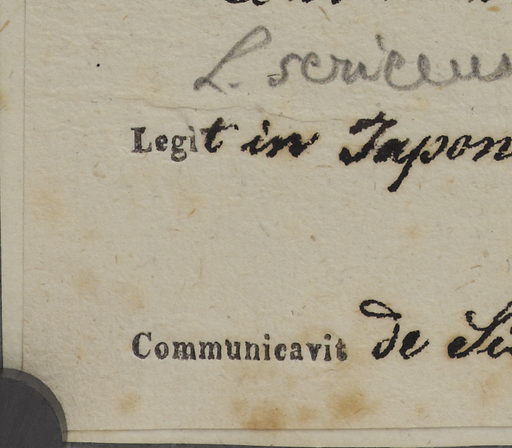 L. sericeus
Legit in Japon
Communicavit de Si